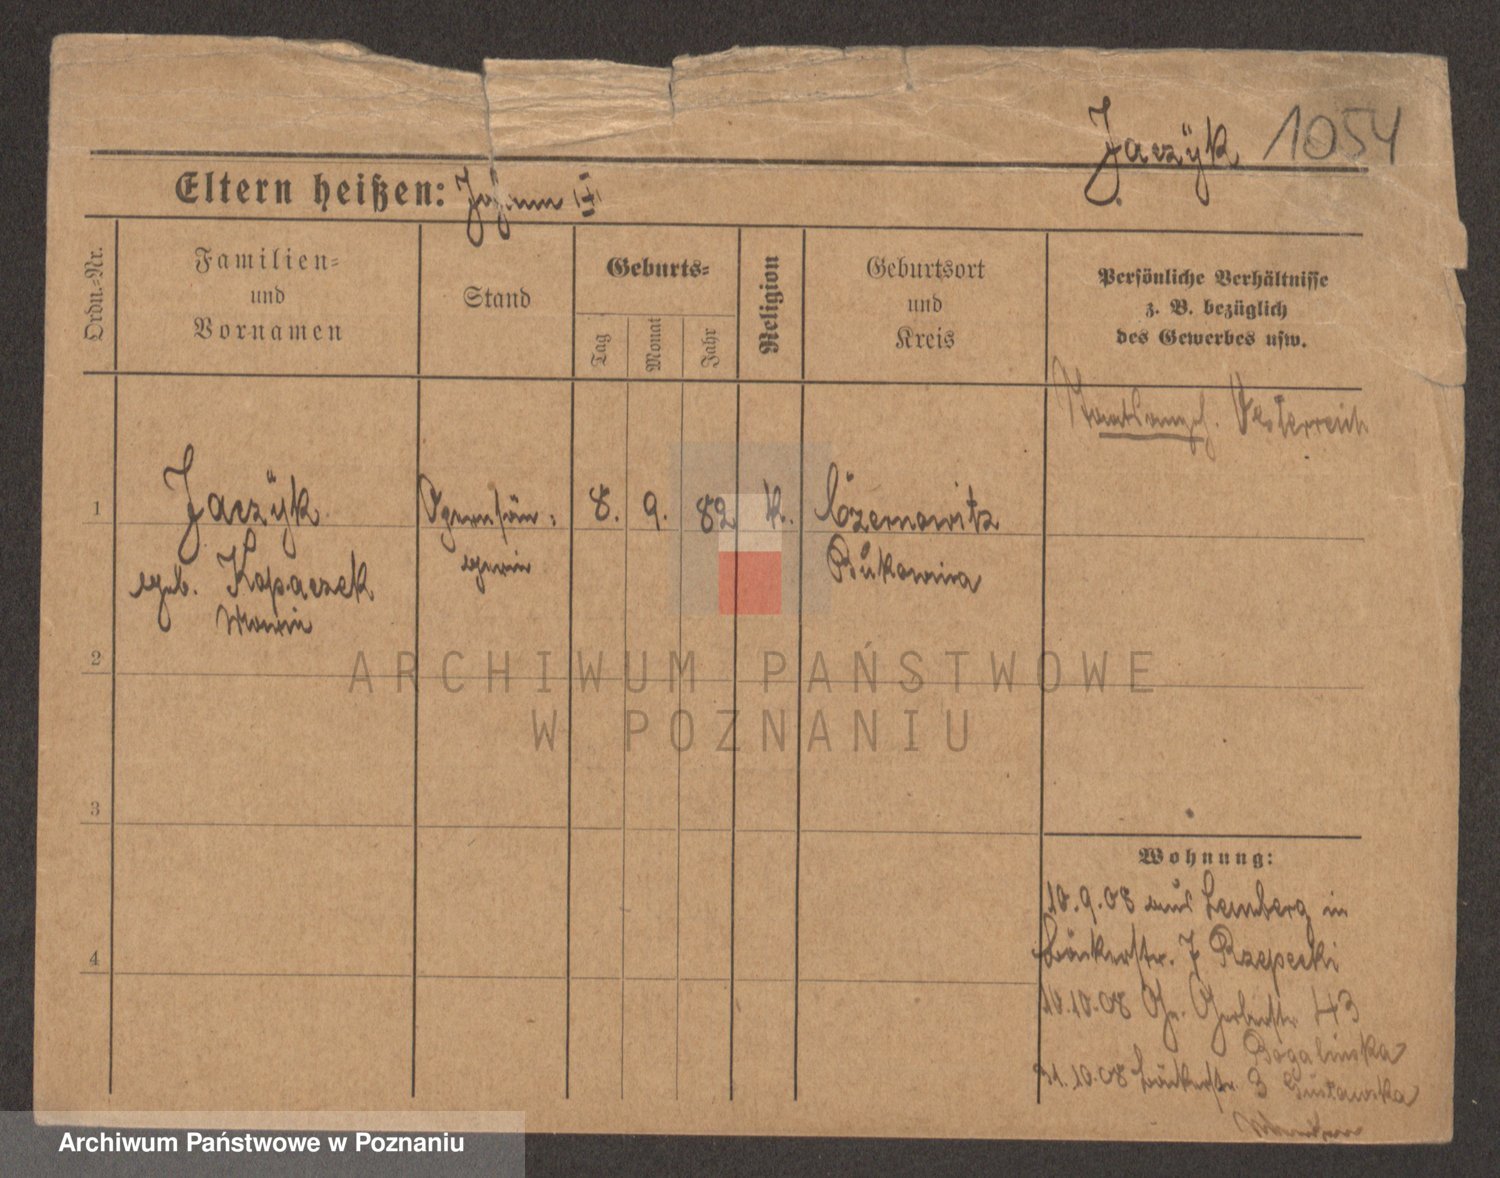 Jaczÿk 1054
Eltern heißen: Johann
Ordn.-Nr.
Familien-
und
Vornamen
Stand
Geburts-
Tag
Monat
Jahr
Religion
Geburtsort
und
Kreis
Persönliche Verhältnisse
z. B. bezüglich
des Gewerbes usw.
Staatsangeh. Österreich
1
Jaczÿk
geb. Kopaczek
Maria
Opernsän-
gerin
8. 9. 82 k. Czernowitz
Bukowina
2
3
4
Wohnung:
10.9.08 aus Lemberg in
Bäckerstr. 7 Rzepecki
10.10.08 Gr. Gerberstr. 43
Bogalinska
31.10.08 Bäckerstr. 3 Gustawska
ARCHIWUM PAŃSTWOWE
W POZNANIU
Archiwum Państwowe w Poznaniu